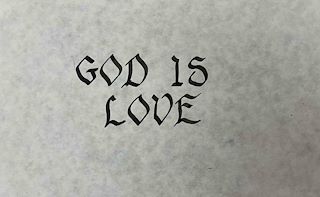 GOD IS
LOVE